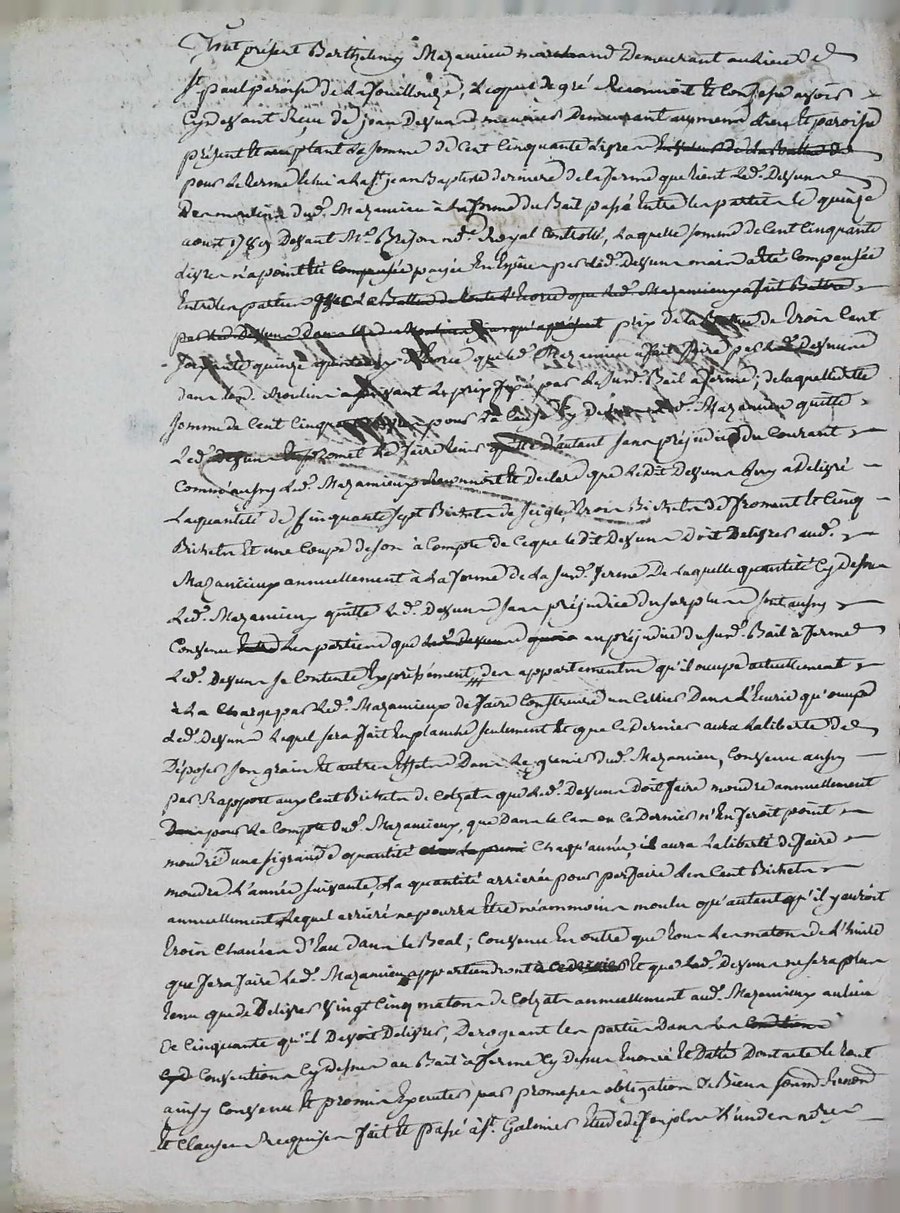 fut présent Barthelemy Mazamieu marchand demeurant au lieu de
St paul paroisse de la fouillouze, lequel de gré reconnoit et confesse avoir
cydevant reçu de jean Dessune meunier demeurant au meme lieu et paroisse
présent et acceptant la somme de cent cinquante livres
pour le terme échu a la St jean Baptiste derniere de la ferme que tient led. Dessune
Des moulins dud. Mazamieu à la forme du Bail passé entre les parties le quinze
aoust 178 devant Me Brison no.re Royal controllé, laquelle somme de cent cinquante
livres n'a point été payée en espece par led. Dessune mais a été compensée
entre les parties avec la Battue de toute l'Ecorce que led. Mazamieux a fait Battre
par led. Dessune dans prix de la de trois cent
soixante quinze quintaux d'Ecorce que led. Mazamieu a fait faire par led. Dessune
dans led. moulin suivant le prix fixé par le susd. Bail a ferme; de laquelle
somme de cent cinquante livres pour la cause cy dessus led. Mazamieu quitte
led. dessune et promet le faire tenir quitte d'autant sans préjudice du courant
comm'aussy led. Mazamieux reconnoit et declare que ledit Dessune luy a délivré
la quantité de cinquante sept Bichets de seigle, trois Bichets de froment et cinq
Bichets et une coupe de son à compte de ce que ledit Dessune doit délivrer aud.
Mazamieux annuellement à la forme de la susd. ferme de laquelle quantité cy dessus
led. Mazamieux quitte led. Dessune sans préjudice du surplus, sont aussy
convenu les parties que led. dessune au préjudice du susd. Bail à ferme
led. Dessune se contente expressément des appartements qu'il occupe actuellement
à la charge par led. Mazamieux de faire construire un cellier dans l'Ecurie qu'occupe
led. Dessune lequel sera fait en planche seulement et que ce dernier aura la liberté de
déposer son grain et autres effets dans le grenier dud. Mazamieu, convenu aussy
par rapport aux cent Bichets de colzats que led. Dessune doit faire moudre annuellement
pour le compte dud. Mazamieux, que dans le cas ou ce dernier n'en feroit point
moudre une si grande quantité chaqu'année, il aura la liberté de faire
moudre l'année suivante, la quantité arrierée pour parfaire les cent Bichets
annuellement, lequel arriéré ne pourra être néammoins moulu qu'autant qu'il y auroit
trois chanées d'Eau dans le Béal; convenu en outre que tous les matons de l'huile
que fera faire led. Mazamieux appartiendront à ce dernier et que led. Dessune ne sera plus
tenu que de délivrer vingt cinq matons de colzats annuellement aud. Mazamieux au lieu
de cinquante qu'il devoit délivrer, derogeant les parties dans les
conventions cy dessus au Bail à ferme cy dessus enoncé et datté dont acte le tout
ainsy convenu et promis executer par promesses obligation de Biens
et clauses requises fait et passé à St Galmier Etude de l'un des no.res